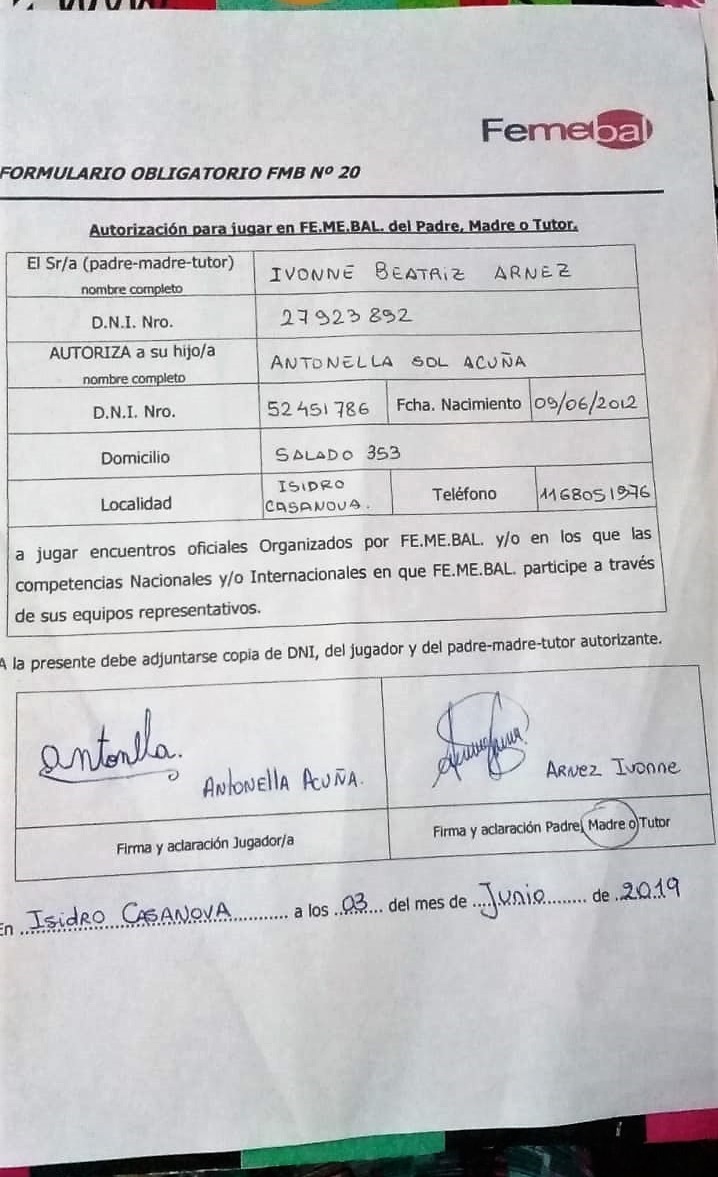 Femebal
FORMULARIO OBLIGATORIO FMB Nº 20
Autorización para jugar en FE.ME.BAL. del Padre, Madre o Tutor.
El Sr/a (padre-madre-tutor)
nombre completo
IVONNE BEATRIZ ARNEZ
D.N.I. Nro.
27923892
AUTORIZA a su hijo/a
nombre completo
ANTONELLA SOL ACUÑA
D.N.I. Nro.
52451786
Fcha. Nacimiento
09/06/2012
Domicilio
SALADO 353
Localidad
ISIDRO
CASANOVA.
Teléfono
1168051976
a jugar encuentros oficiales Organizados por FE.ME.BAL. y/o en los que las
competencias Nacionales y/o Internacionales en que FE.ME.BAL. participe a través
de sus equipos representativos.
A la presente debe adjuntarse copia de DNI, del jugador y del padre-madre-tutor autorizante.
antonlla.
ANTONELLA ACUÑA.
ARNEZ IVONNE
Firma y aclaración Jugador/a
Firma y aclaración Padre, Madre o Tutor
En ..Isidro CASANOVA........... a los ..03... del mes de ....Junio........ de .2019